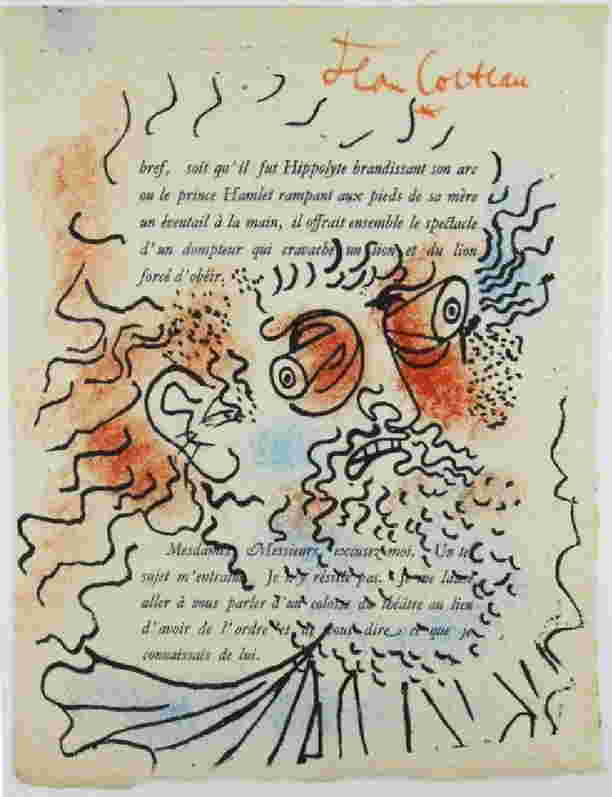 Jean Cocteau
bref, soit qu'il fut Hippolyte brandissant son arc
ou le prince Hamlet rampant aux pieds de sa mère
un éventail à la main, il offrait ensemble le spectacle
d'un dompteur qui cravache un lion et du lion
forcé d'obéir.
Mesdames, Messieurs, excusez-moi. Un tel
sujet m'entraîne. Je n'y résiste pas. Je me laisse
aller à vous parler d'un colosse du théâtre au lieu
d'avoir de l'ordre et de vous dire ce que je
connaissais de lui.